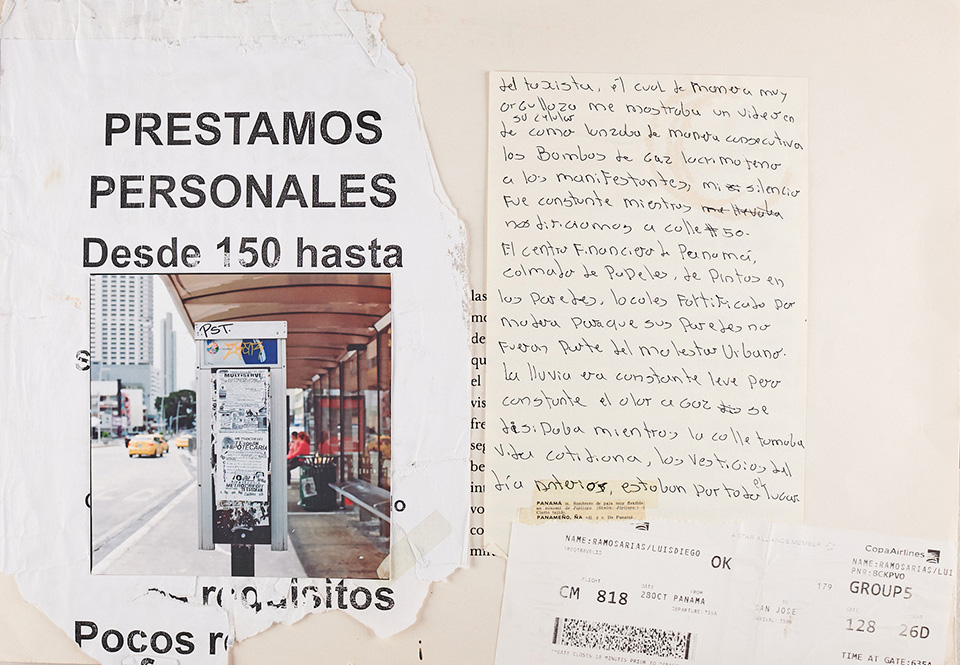 PRESTAMOS
PERSONALES
Desde 150 hasta
PST.
MULTISERVI
requisitos
Pocos re
o
las
mo
de
qu
el
vis
fre
seg
be
int
vo
co
mi
del taxista, él cual de manera muy
orgulloza me mostraba un video en
su celular
de como lanzaba de manera consecutiva
las Bombas de Gaz lacrimogeno
a los manifestantes, mi silencio
fue constante mientras me llevaba
nos diriciamos a calle #50.
El centro Financiero de Panamá,
colmado de Papeles, de Pintas en
las Paredes, locales Fortificado por
madera para que sus Paredes no
fueran Parte del malestar Urbano.
La lluvia era constante leve pero
constante el olor a Gaz se
disipaba mientras la calle tomaba
vida cotidiana, los vestigios del
día anterior, estaban por todo el lugar
PANAMÁ m. Sombrero de paja muy flexible
PANAMEÑO, ÑA adj. y s. De Panamá
NAME:RAMOSARIAS/LUISDIEGO
OK
FLIGHT
DATE
FROM
CM 818
28OCT PANAMA
A STAR ALLIANCE MEMBER
179
SAN JOSE
CopaAirlines
NAME:RAMOSARIAS/LUI
PNR:BCKPVO
GROUP5
GATE
SEAT
128 26D
TIME AT GATE:635A